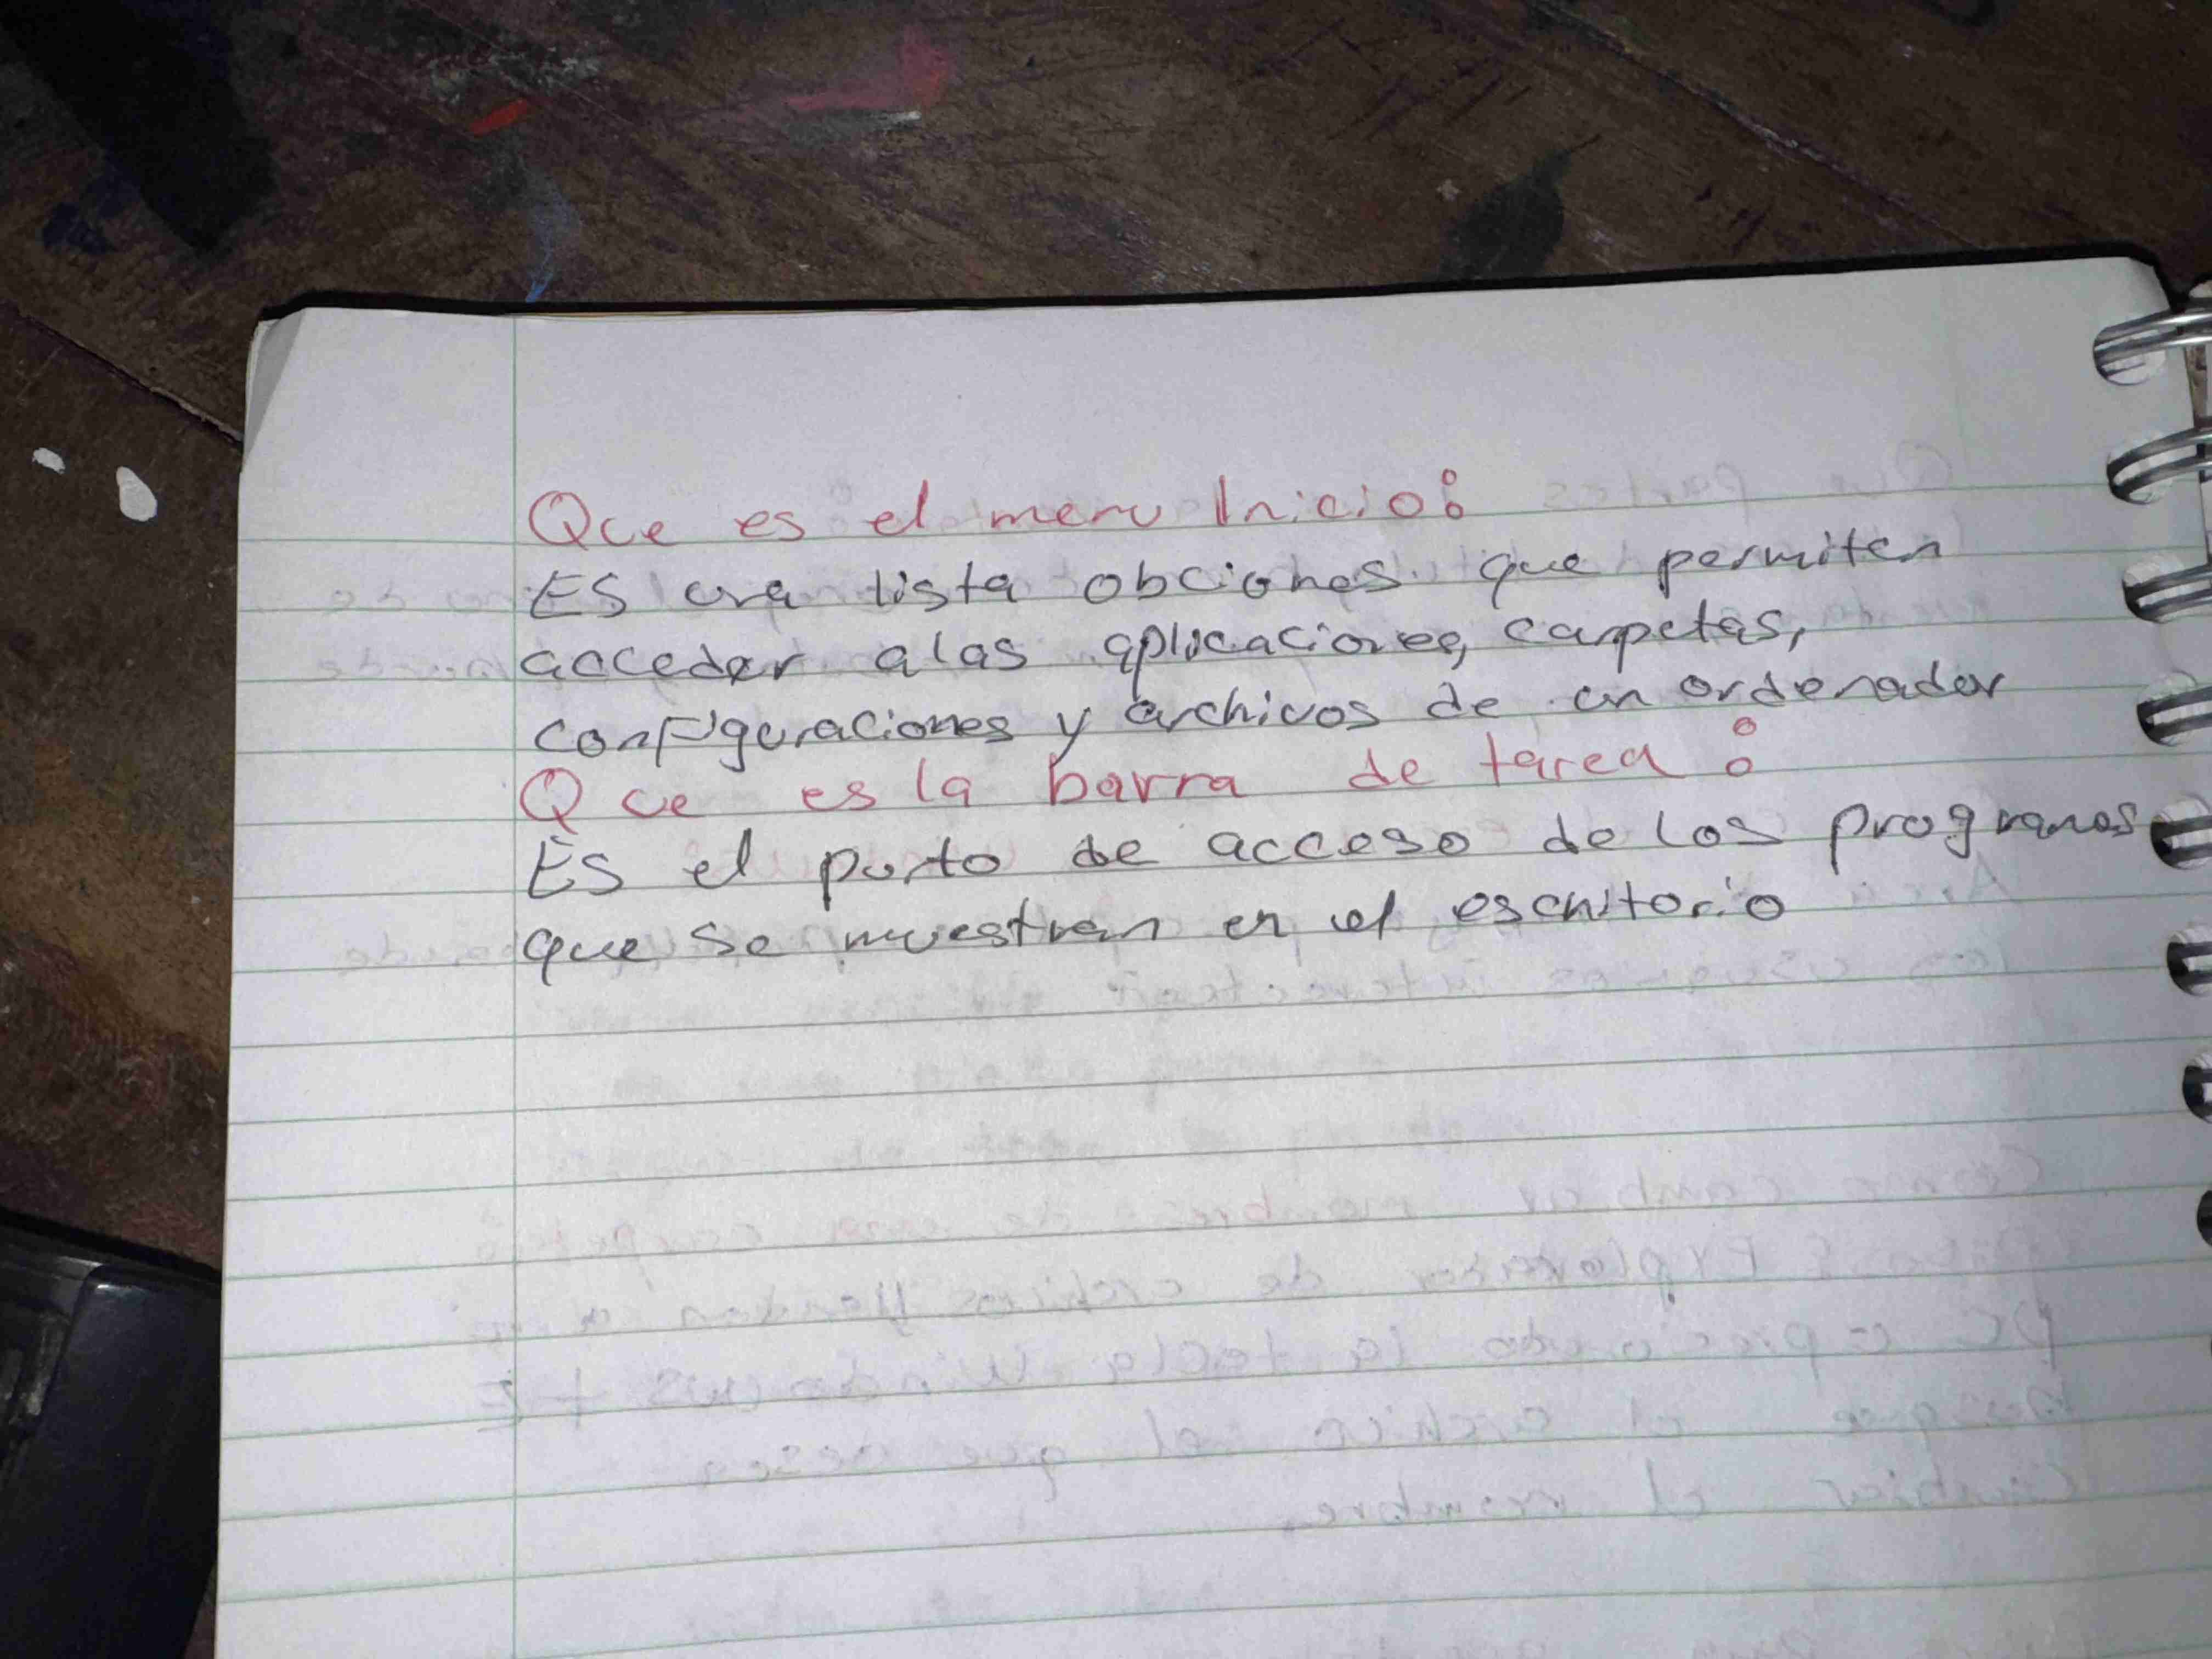 Que es el menu Inicio:
ES una lista obciones que permiten
acceder alas aplicaciones, carpetas,
configuraciones y archivos de un ordenador
Que es la barra de tarea :
Es el punto de acceso de los programas
que se muestran en el escritorio